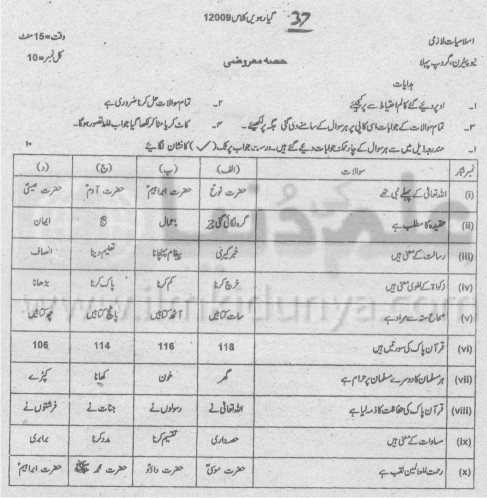 37 گیارہویں کلاس 12009
اسلامیات لازمی وقت=15 منٹ
نیوپیٹرن، گروپ پہلا حصہ معروضی کل نمبر=10
ہدایات
۱۔ اوپر دیے گئے کالم احتیاط سے پر کیجئے ۲۔ تمام سوالات حل کرنا ضروری ہے
۳۔ تمام سوالات کے جوابات اسی کاپی پر ہر سوال کے سامنے دی گئی جگہ پر لکھیئے۔ ۴۔ کاٹ کر یا مٹا کر لکھا گیا جواب غلط تصور ہوگا۔
۱۔ مندرجہ ذیل میں سے ہر سوال کے چار ممکنہ جوابات دیے گئے ہیں۔ درست جواب پر ٹک (✓) کا نشان لگائیے ۱۰
نمبر شمار سوالات (الف) (ب) (ج) (د)
(i) اللہ تعالیٰ کے پہلے نبی تھے حضرت نوحؑ حضرت ابراہیمؑ حضرت آدمؑ حضرت عیسیٰؑ
(ii) عقیدہ کا مطلب ہے گرہ لگائی گئی چیز حج ایمان
(iii) رسالت کے معنی ہیں خبر گیری پیغام پہنچانا تعلیم دینا انصاف
(iv) زکوٰۃ کے لغوی معنی ہیں خرچ کرنا کم کرنا پاک کرنا بڑھانا
(v) صحاح ستہ سے مراد ہے سات کتابیں آٹھ کتابیں پانچ کتابیں چھ کتابیں
(vi) قرآن پاک کی سورتیں ہیں 118 116 114 106
(vii) ہر مسلمان کا دوسرے مسلمان پر حرام ہے گھر خون کھانا کپڑے
(viii) قرآن پاک کی حفاظت کا ذمہ لیا ہے اللہ تعالیٰ نے رسولوں نے جنات نے فرشتوں نے
(ix) مساوات کے معنی ہیں حصہ داری تقسیم کرنا مدد کرنا برابری
(x) رحمت للعالمین لقب ہے حضرت موسیٰؑ حضرت داؤدؑ حضرت محمد ﷺ حضرت ابراہیمؑ
علم کی دنیا
www.ilmkidunya.com